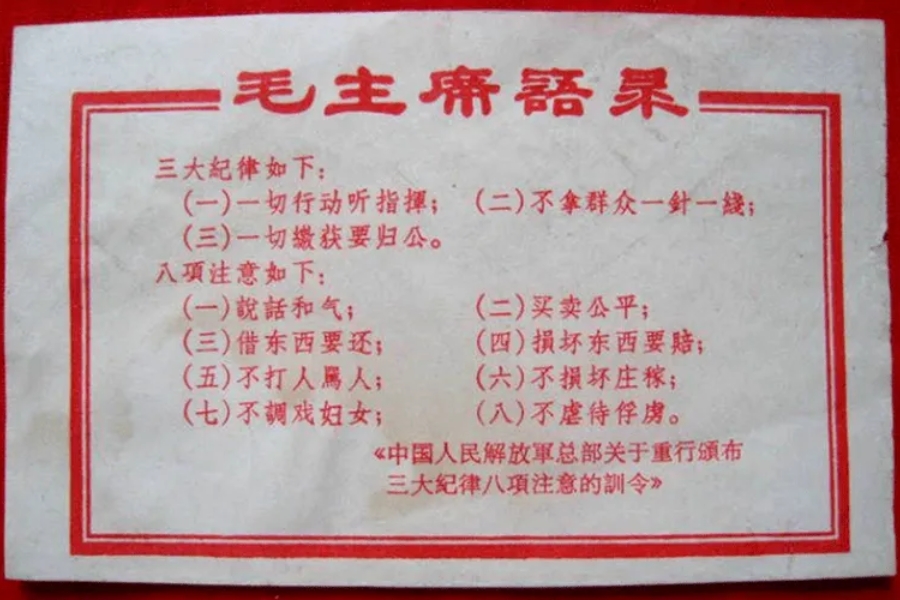 毛主席語录
三大紀律如下：
(一)一切行动听指揮； (二)不拿群众一針一綫；
(三)一切繳获要归公。
八項注意如下：
(一)說話和气； (二)买卖公平；
(三)借东西要还； (四)損坏东西要賠；
(五)不打人罵人； (六)不損坏庄稼；
(七)不調戏妇女； (八)不虐待俘虏。
《中国人民解放軍总部关于重行頒布
三大紀律八項注意的訓令》